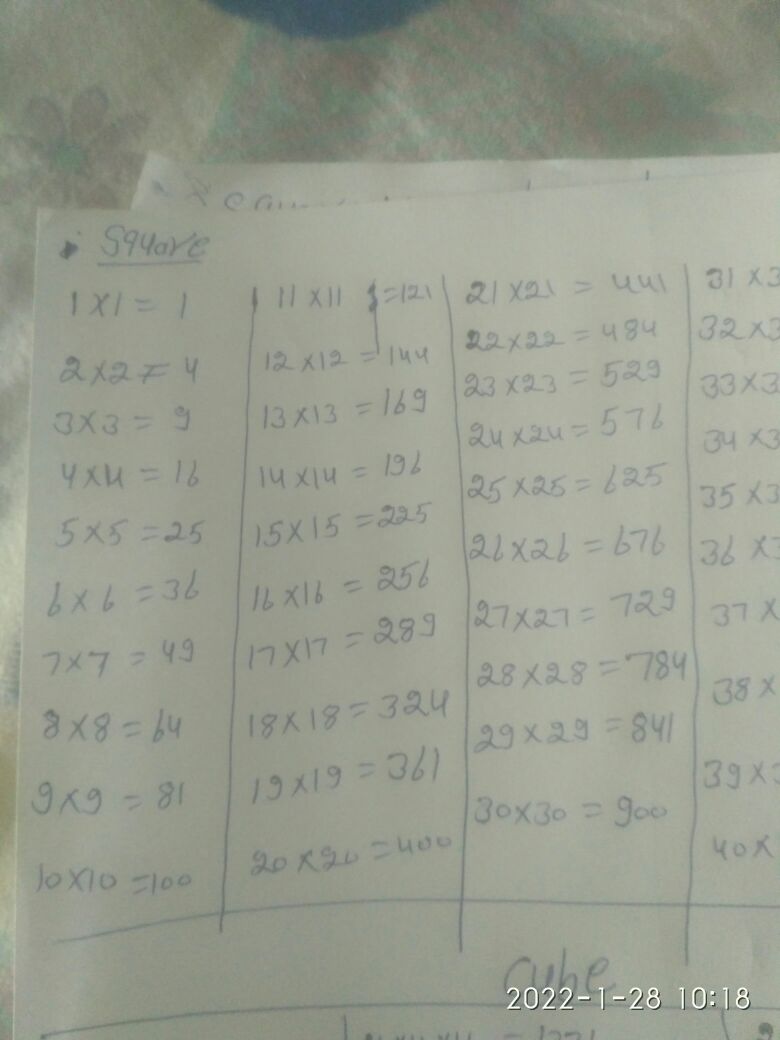 Square
1 x 1 = 1
2 x 2 = 4
3 x 3 = 9
4 x 4 = 16
5 x 5 = 25
6 x 6 = 36
7 x 7 = 49
8 x 8 = 64
9 x 9 = 81
10 x 10 = 100
11 x 11 = 121
12 x 12 = 144
13 x 13 = 169
14 x 14 = 196
15 x 15 = 225
16 x 16 = 256
17 x 17 = 289
18 x 18 = 324
19 x 19 = 361
20 x 20 = 400
21 x 21 = 441
22 x 22 = 484
23 x 23 = 529
24 x 24 = 576
25 x 25 = 625
26 x 26 = 676
27 x 27 = 729
28 x 28 = 784
29 x 29 = 841
30 x 30 = 900
31 x 3
32 x 3
33 x 3
34 x 3
35 x 3
36 x 3
37 x
38 x
39 x
40 x
cube
2022-1-28 10:18